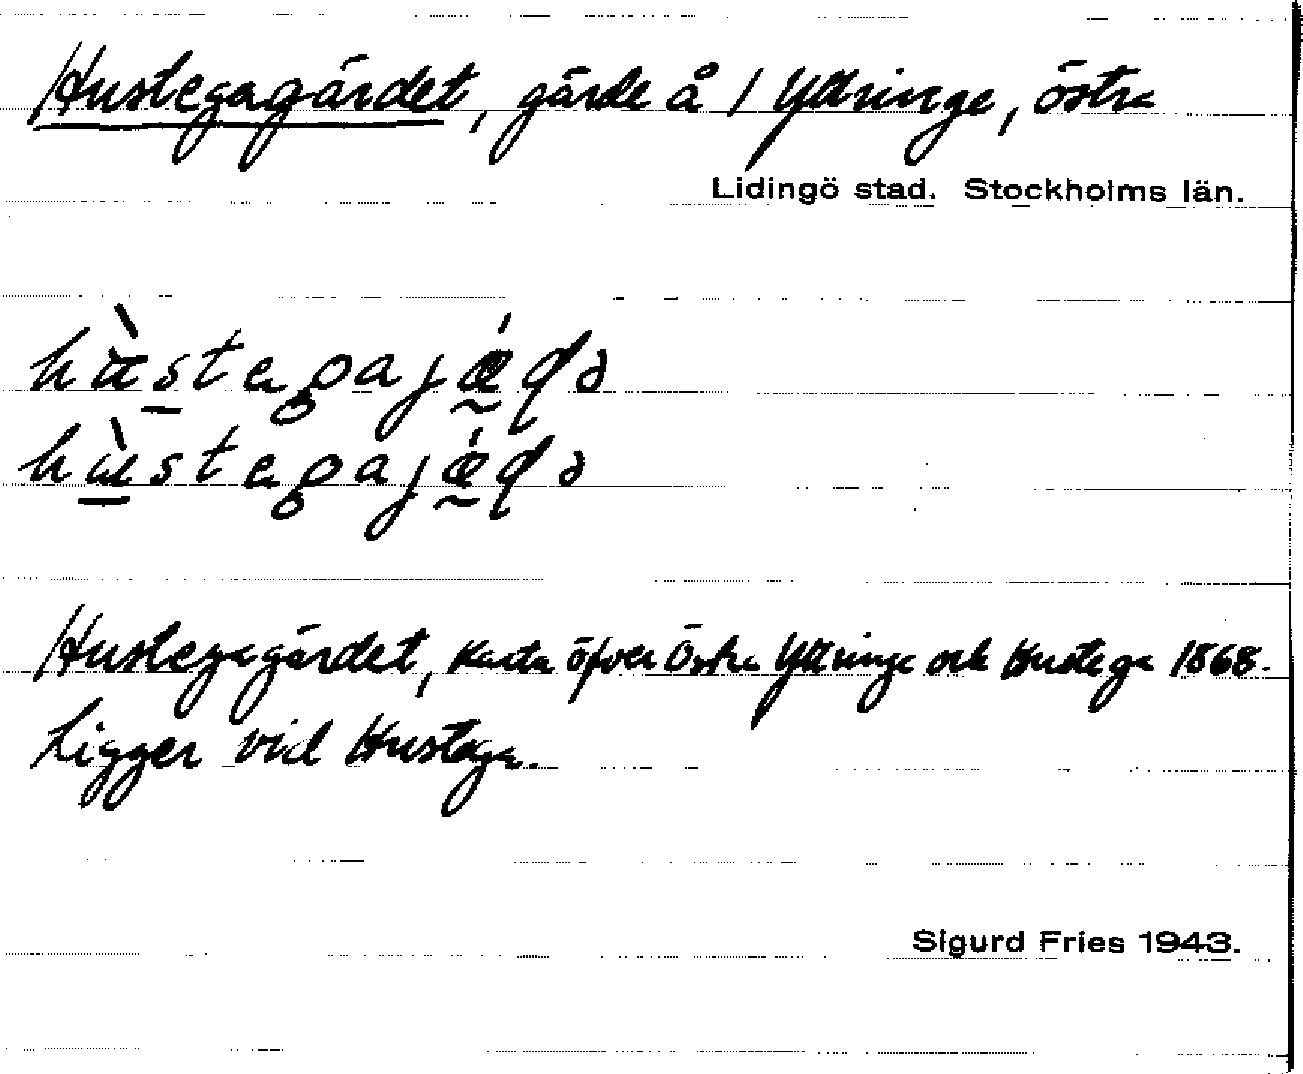 Hustegagärdet, gärde å 1 Yttringe, östra
Lidingö stad. Stockholms län.
Hustegagärdet, Karta öfver Östra Yttringe och Hustega 1868.
Ligger vid Hustega.
Sigurd Fries 1943.